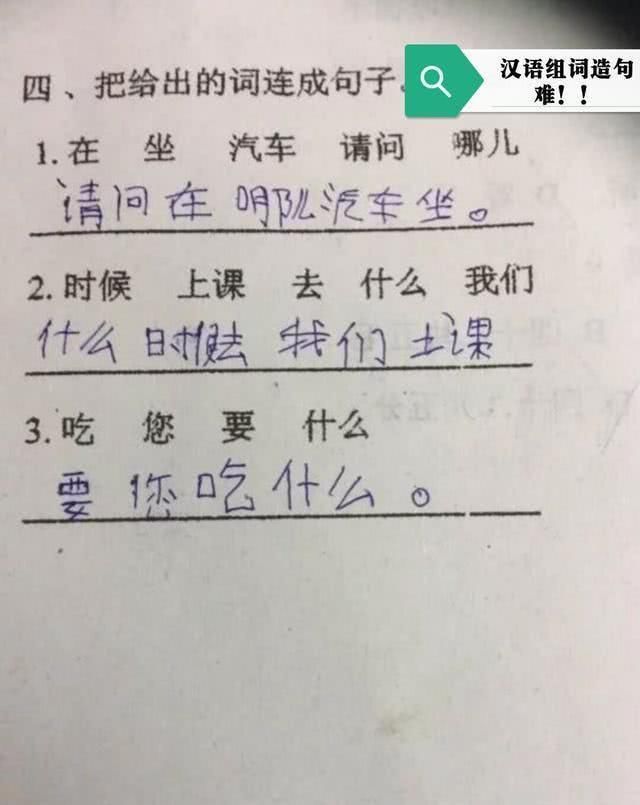 汉语组词造句
难！！
四、把给出的词连成句子。
1.在 坐 汽车 请问 哪儿
请问在 哪儿汽车坐。
2.时候 上课 去 什么 我们
什么 时候去 我们 上课
3.吃 您 要 什么
要 您吃什么。